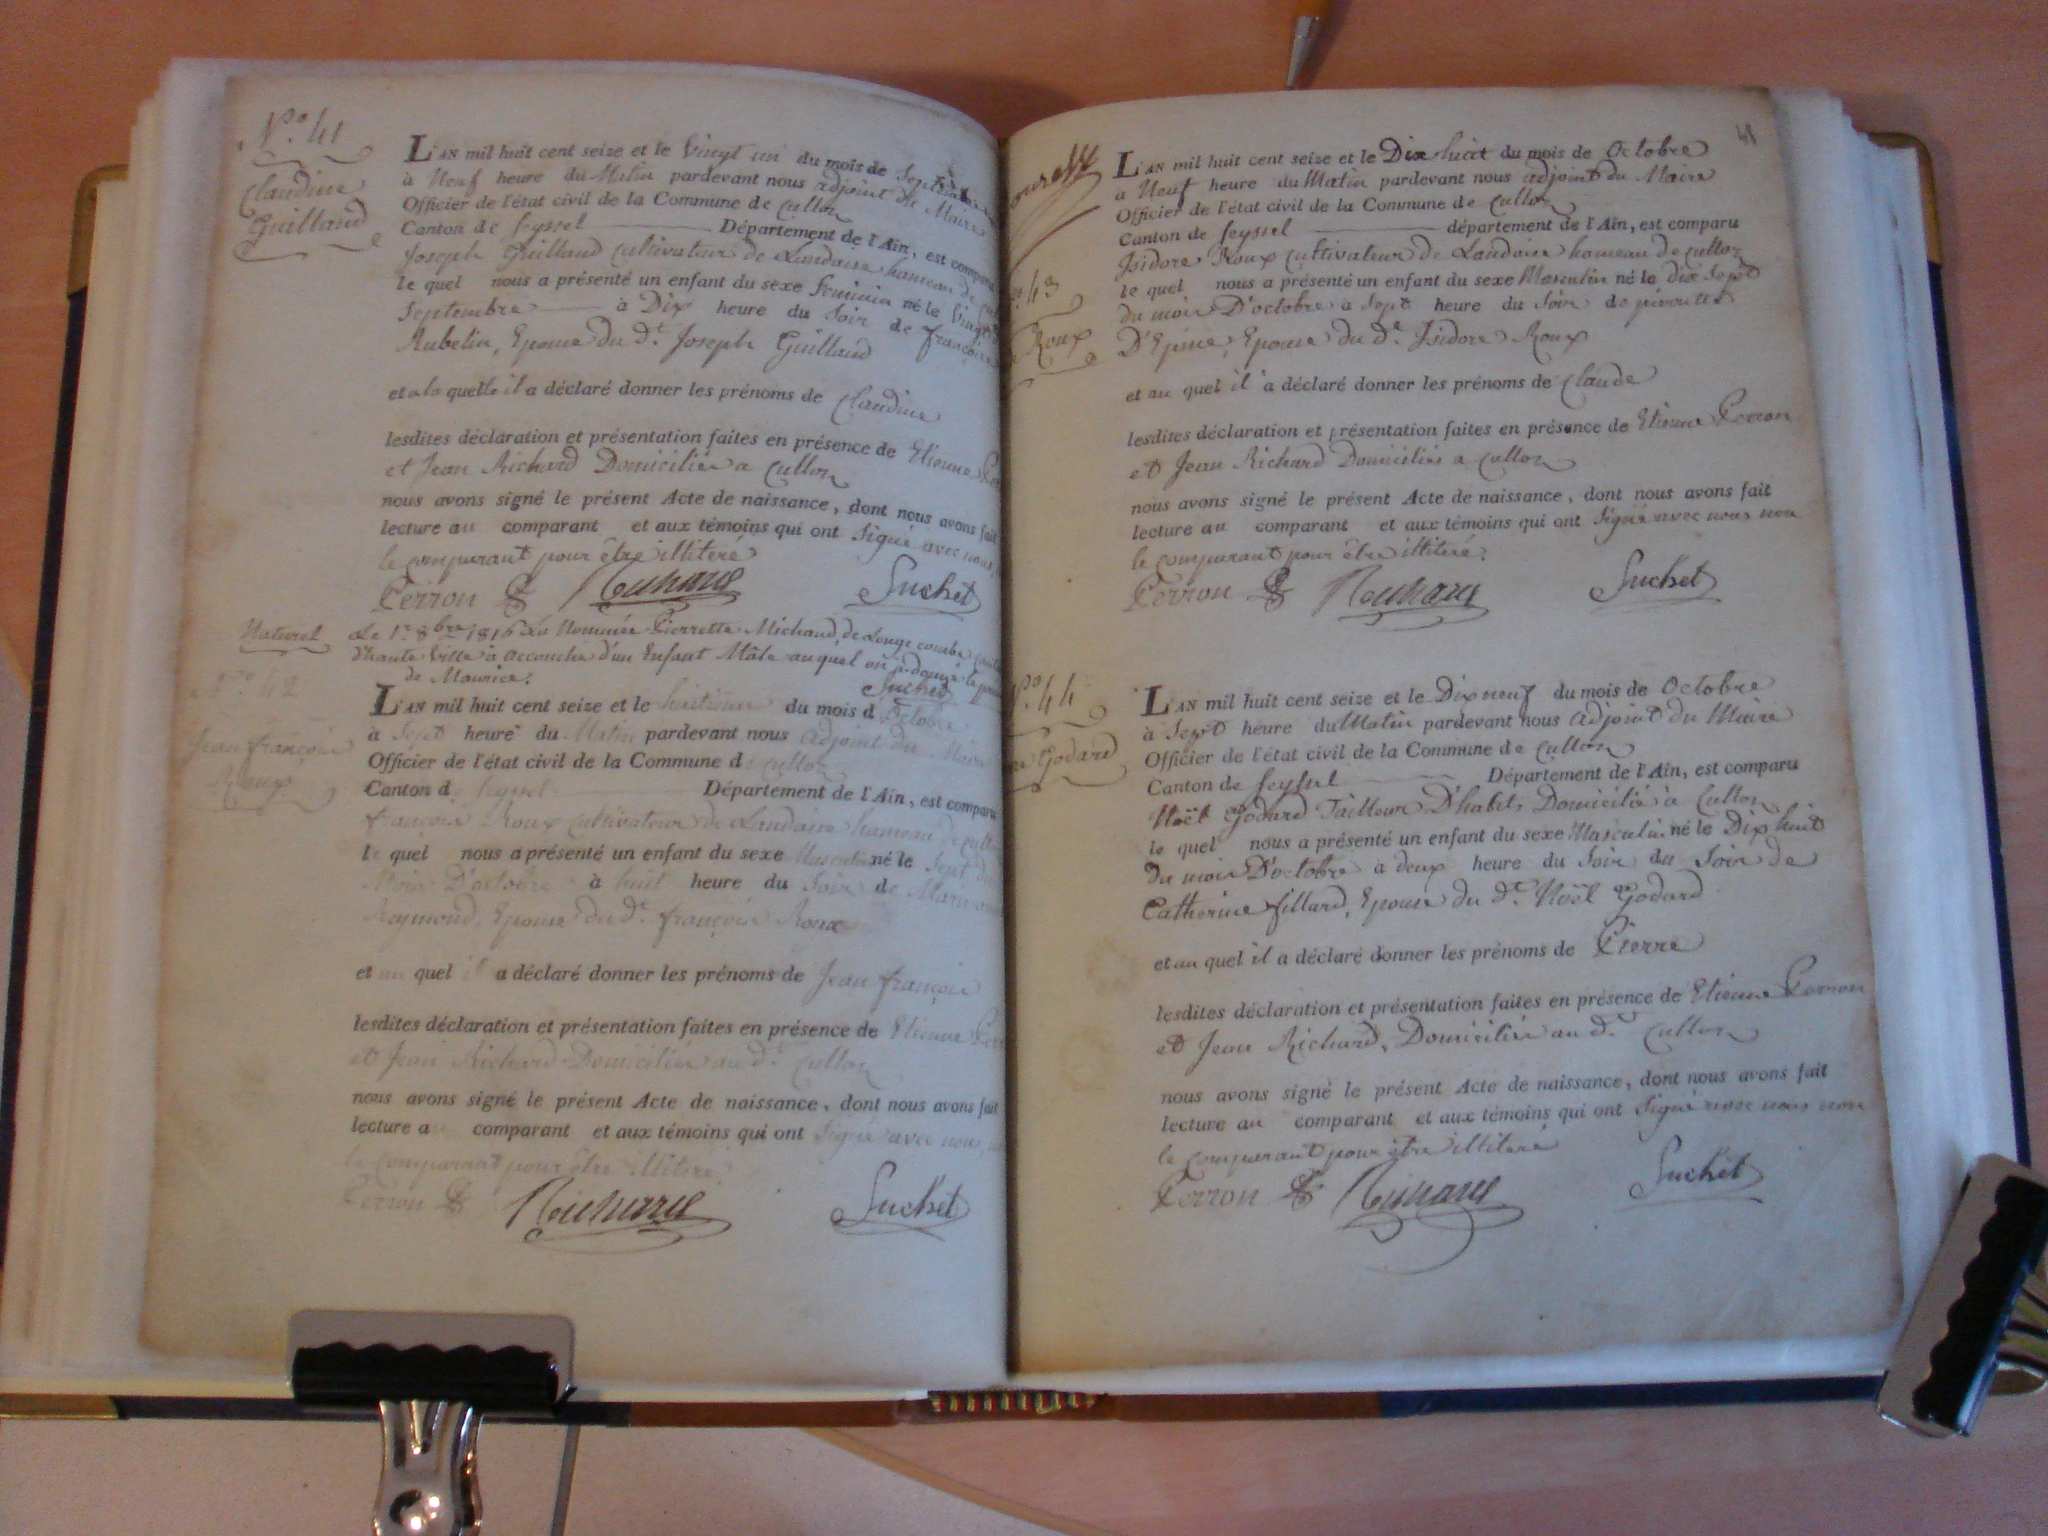 N.º 41
Claudine
Guilland
L'AN mil huit cent seize et le vingt un du mois de Septembre
à Neuf heure du Matin pardevant nous adjoint du Maire
Officier de l'état civil de la Commune de Culloz
Canton de Seyssel Département de l'Ain, est comparu
Joseph Guilland Cultivateur de Landaise hameau de
le quel nous a présenté un enfant du sexe féminin né le Vingt
Septembre à Dix heure du Soir de françoise
Rubelin, Epouse du d.t Joseph Guilland
et a la quelle il a déclaré donner les prénoms de Claudine
lesdites déclaration et présentation faites en présence de Etienne
et Jean Richard Domiciliés a Culloz
nous avons signé le présent Acte de naissance, dont nous avons fait
lecture au comparant et aux témoins qui ont Signé avec nous,
le comparant pour être illitéré
Perron Richard Suchet
Naturel
Le 1.r 8bre 1816 la Nommée Pierrette Michaud, de Longe combe
d'haute Ville à accouchée d'un Enfant Mâle auquel on a donné le
de Maurice.
Suchet
N.º 42
Jean françois
Roux
L'AN mil huit cent seize et le huitieme du mois d'Octobre
à Sept heure du Matin pardevant nous adjoint du Maire
Officier de l'état civil de la Commune de Culloz
Canton de Seyssel Département de l'Ain, est comparu
françois Roux cultivateur de Landaise hameau de
le quel nous a présenté un enfant du sexe Masculin né le Sept du
Mois D'octobre à huit heure du Soir de Marie
Reymond, Epouse du d.t françois Roux
et au quel il a déclaré donner les prénoms de Jean françois
lesdites déclaration et présentation faites en présence de Etienne
et Jean Richard Domiciliés au d.t Culloz
nous avons signé le présent Acte de naissance, dont nous avons fait
lecture au comparant et aux témoins qui ont Signé avec nous
le comparant pour être illitéré
Perron Richard Suchet
41
43
Roux
L'AN mil huit cent seize et le Dix huit du mois de Octobre
a Neuf heure du Matin pardevant nous adjoint du Maire
Officier de l'état civil de la Commune de Culloz
Canton de Seyssel département de l'Ain, est comparu
Isidore Roux Cultivateur de Landaise hameau de Culloz
le quel nous a présenté un enfant du sexe Masculin né le dix Sept
du mois D'octobre à Sept heure du Soir de
D'Epine, Epouse du d.t Isidore Roux
et au quel il a déclaré donner les prénoms de Claude
lesdites déclaration et présentation faites en présence de Etienne Perron
et Jean Richard Domiciliés a Culloz
nous avons signé le présent Acte de naissance, dont nous avons fait
lecture au comparant et aux témoins qui ont Signé avec nous non
le comparant pour être illitéré.
Perron Richard Suchet
N.º 44
Godard
L'AN mil huit cent seize et le Dix neuf du mois de Octobre
à Sept heure du Matin pardevant nous adjoint du Maire
Officier de l'état civil de la Commune de Culloz
Canton de Seyssel Département de l'Ain, est comparu
Noël Godard Tailleur D'habits Domicilié à Culloz
le quel nous a présenté un enfant du sexe Masculin né le Dix huit
du mois D'octobre à deux heure du Soir du Soir de
Catherine fillard, Epouse du d.t Noël Godard
et au quel il a déclaré donner les prénoms de Pierre
lesdites déclaration et présentation faites en présence de Etienne Perron
et Jean Richard, Domiciliés au d.t Culloz
nous avons signé le présent Acte de naissance, dont nous avons fait
lecture au comparant et aux témoins qui ont Signé avec nous non
le comparant pour être illitéré
Perron Richard Suchet